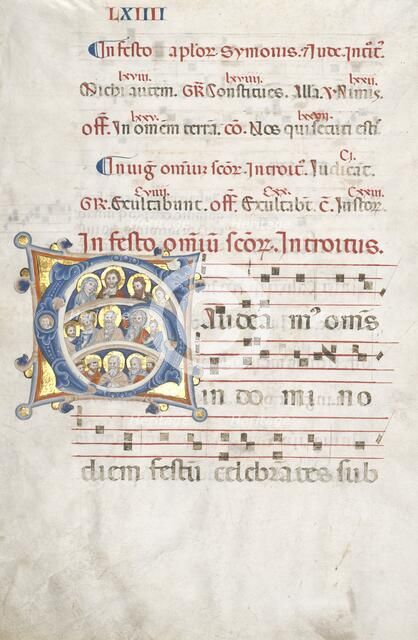 LXIIII
In festo aplor. Symonis. & Jude. Int.
lxviii. lxviiii. lxxii.
Michi autem. GR. Constitues. Alla. V. Nimis.
lxxv. lxxvii.
off. In omem terra. co. Nos qui secuti esti.
In uig omium scor. Introit. Iudicat. Cj.
Cviiij. Cxx. Cxxiii.
GR. Exultabunt. off. Exultabt. c. Iustor.
In festo omiu scor. Introitus.
Gaudeamus oms
in domino
diem festu celebrates sub